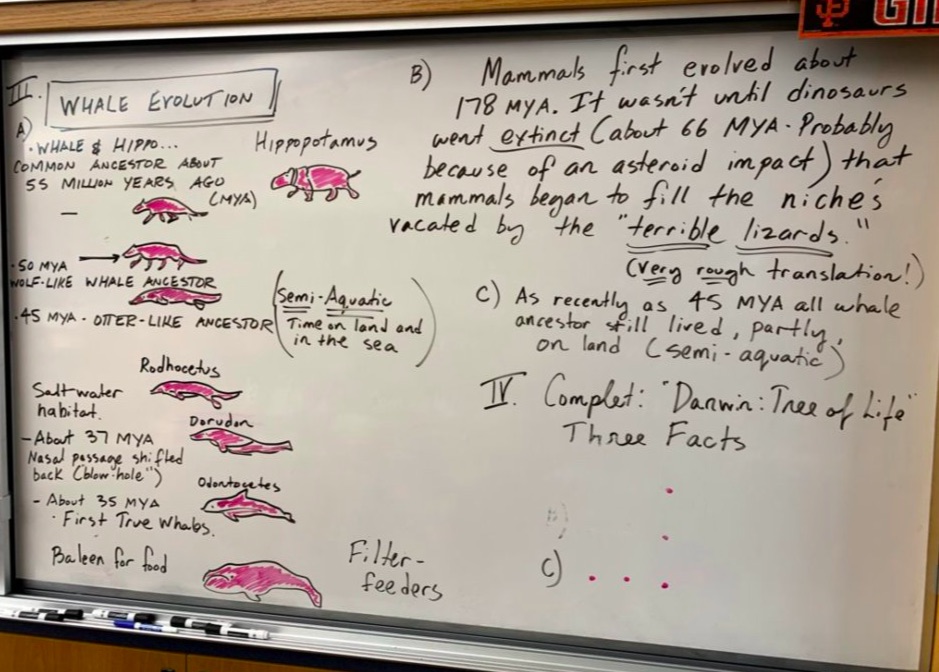 III. WHALE EVOLUTION
A)
· WHALE & HIPPO...
COMMON ANCESTOR ABOUT
55 MILLION YEARS AGO
(MYA)
Hippopotamus
· 50 MYA
WOLF-LIKE WHALE ANCESTOR
· 45 MYA - OTTER-LIKE ANCESTOR
(Semi-Aquatic
Time on land and
in the sea)
Rodhocetus
Saltwater
habitat.
Dorudon
- About 37 MYA
Nasal passage shifted
back (blow-hole")
Odontocetes
- About 35 MYA
· First True Whales.
Baleen for food
Filter-
feeders
B) Mammals first evolved about
178 MYA. It wasn't until dinosaurs
went extinct (about 66 MYA - Probably
because of an asteroid impact) that
mammals began to fill the niches
vacated by the "terrible lizards."
(very rough translation!)
C) As recently as 45 MYA all whale
ancestor still lived, partly,
on land (semi-aquatic)
IV. Complet: "Darwin: Tree of Life"
Three Facts
B)
C)
SF